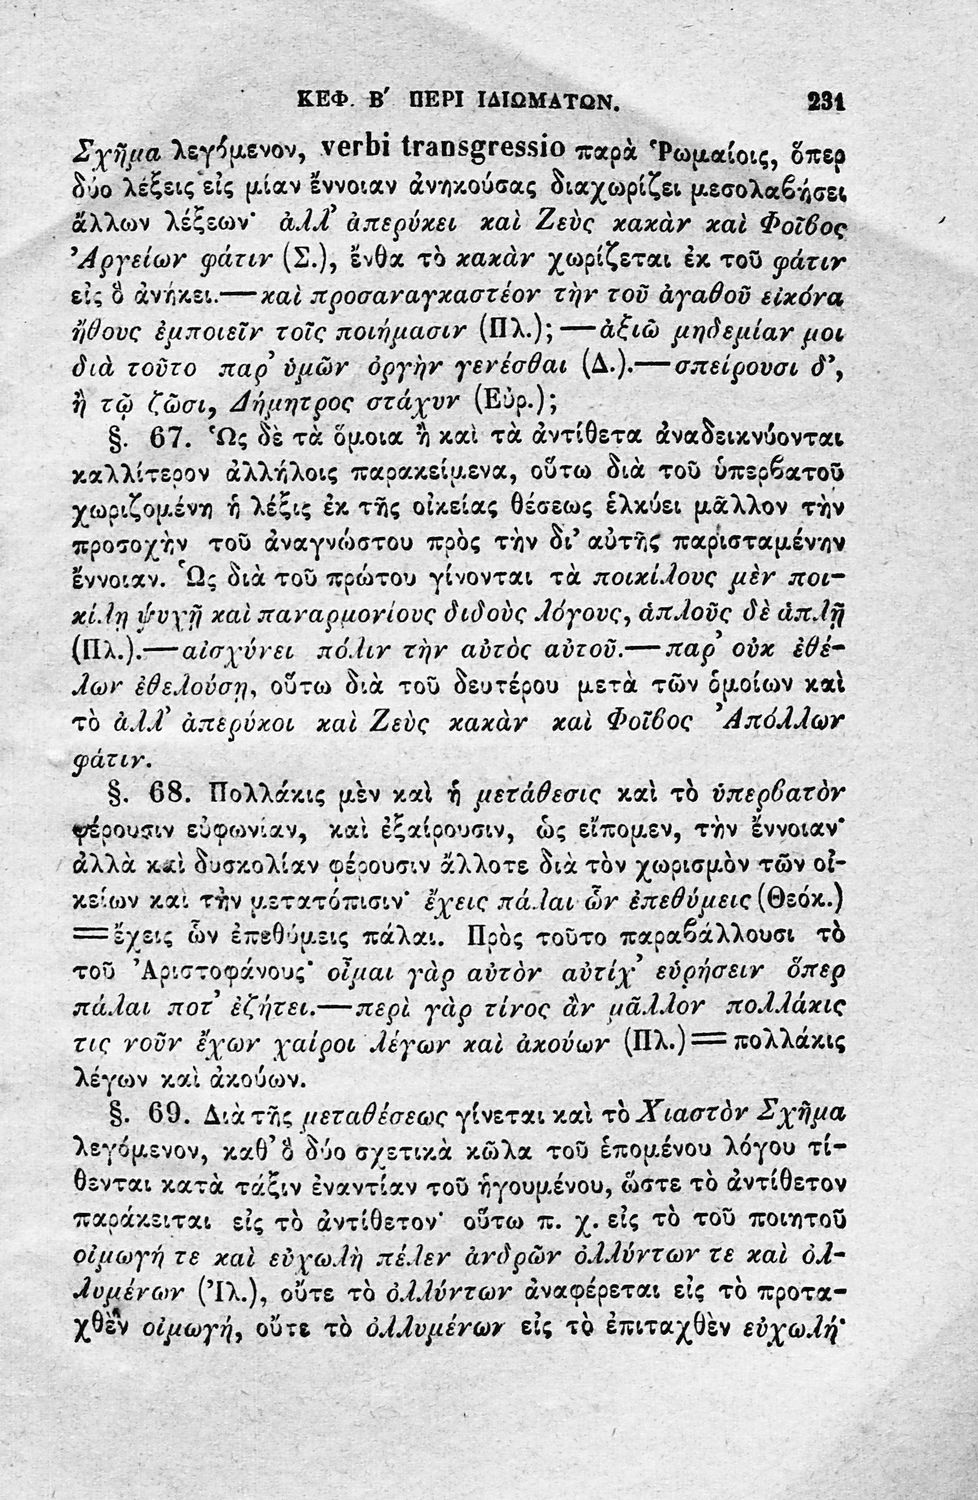 ΚΕΦ. Β΄ ΠΕΡΙ ΙΔΙΩΜΑΤΩΝ. 231
Σχῆμα λεγόμενον, verbi transgressio παρὰ Ῥωμαίοις, ὅπερ
δύο λέξεις εἰς μίαν ἔννοιαν ἀνηκούσας διαχωρίζει μεσολαβήσει
ἄλλων λέξεων· ἀλλ' ἀπερύκει καὶ Ζεὺς κακὰν καὶ Φοῖβος
Ἀργείων φάτιν (Σ.), ἔνθα τὸ κακὰν χωρίζεται ἐκ τοῦ φάτιν
εἰς ὃ ἀνήκει.—καὶ προσαναγκαστέον τὴν τοῦ ἀγαθοῦ εἰκόνα
ἤθους ἐμποιεῖν τοῖς ποιήμασιν (Πλ.);—ἀξιῶ μηδεμίαν μοι
διὰ τοῦτο παρ' ὑμῶν ὀργὴν γενέσθαι (Δ.).—σπείρουσι δ',
ἢ τῷ ζῶσι, Δήμητρος στάχυν (Εὐρ.);
§. 67. Ὡς δὲ τὰ ὅμοια ἢ καὶ τὰ ἀντίθετα ἀναδεικνύονται
καλλίτερον ἀλλήλοις παρακείμενα, οὕτω διὰ τοῦ ὑπερβατοῦ
χωριζομένη ἡ λέξις ἐκ τῆς οἰκείας θέσεως ἑλκύει μᾶλλον τὴν
προσοχὴν τοῦ ἀναγνώστου πρὸς τὴν δι' αὐτῆς παρισταμένην
ἔννοιαν. Ὡς διὰ τοῦ πρώτου γίνονται τὰ ποικίλους μὲν ποι-
κίλῃ ψυχῇ καὶ παναρμονίους διδοὺς λόγους, ἁπλοῦς δὲ ἁπλῇ
(Πλ.).—αἰσχύνει πόλιν τὴν αὐτὸς αὑτοῦ.—παρ' οὐκ ἐθέ-
λων ἐθελούσῃ, οὕτω διὰ τοῦ δευτέρου μετὰ τῶν ὁμοίων καὶ
τὸ ἀλλ' ἀπερύκοι καὶ Ζεὺς κακὰν καὶ Φοῖβος Ἀπόλλων
φάτιν.
§. 68. Πολλάκις μὲν καὶ ἡ μετάθεσις καὶ τὸ ὑπερβατὸν
φέρουσιν εὐφωνίαν, καὶ ἐξαίρουσιν, ὡς εἴπομεν, τὴν ἔννοιαν·
ἀλλὰ καὶ δυσκολίαν φέρουσιν ἄλλοτε διὰ τὸν χωρισμὸν τῶν οἰ-
κείων καὶ τὴν μετατόπισιν· ἔχεις πάλαι ὧν ἐπεθύμεις (Θεόκ.)
=ἔχεις ὧν ἐπεθύμεις πάλαι. Πρὸς τοῦτο παραβάλλουσι τὸ
τοῦ Ἀριστοφάνους· οἶμαι γὰρ αὐτὸν αὐτίχ' εὑρήσειν ὅπερ
πάλαι ποτ' ἐζήτει.—περὶ γὰρ τίνος ἂν μᾶλλον πολλάκις
τις νοῦν ἔχων χαίροι λέγων καὶ ἀκούων (Πλ.)=πολλάκις
λέγων καὶ ἀκούων.
§. 69. Διὰ τῆς μεταθέσεως γίνεται καὶ τὸ Χιαστὸν Σχῆμα
λεγόμενον, καθ' ὃ δύο σχετικὰ κῶλα τοῦ ἑπομένου λόγου τί-
θενται κατὰ τάξιν ἐναντίαν τοῦ ἡγουμένου, ὥστε τὸ ἀντίθετον
παράκειται εἰς τὸ ἀντίθετον· οὕτω π. χ. εἰς τὸ τοῦ ποιητοῦ
οἰμωγή τε καὶ εὐχωλὴ πέλεν ἀνδρῶν ὀλλύντων τε καὶ ὀλ-
λυμένων (Ἰλ.), οὔτε τὸ ὀλλύντων ἀναφέρεται εἰς τὸ προτα-
χθὲν οἰμωγή, οὔτε τὸ ὀλλυμένων εἰς τὸ ἐπιταχθὲν εὐχωλή·